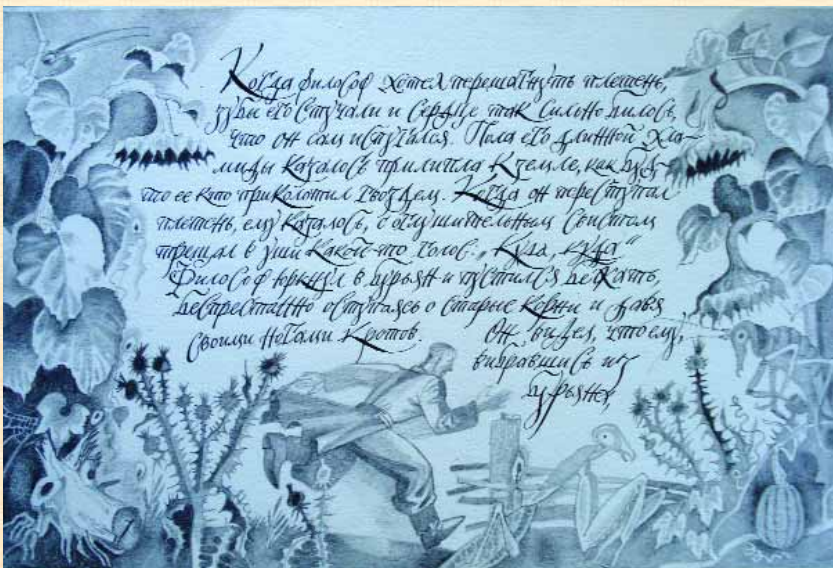 Когда философ хотел перешагнуть плетень,
зубы его стучали и сердце так сильно билось,
что он сам испугался. Пола его длинной хла-
миды казалось прилипла к земле, как буд-
то ее кто приколотил гвоздем. Когда он переступал
плетень, ему казалось, с оглушительным свистом
трещал в уши какой-то голос: „Куда, куда"
Философ юркнул в бурьян и пустился бежать,
беспрестанно оступаясь о старые корни и давя
своими ногами кротов. Он видел, что ему,
выбравшись из
бурьяна,